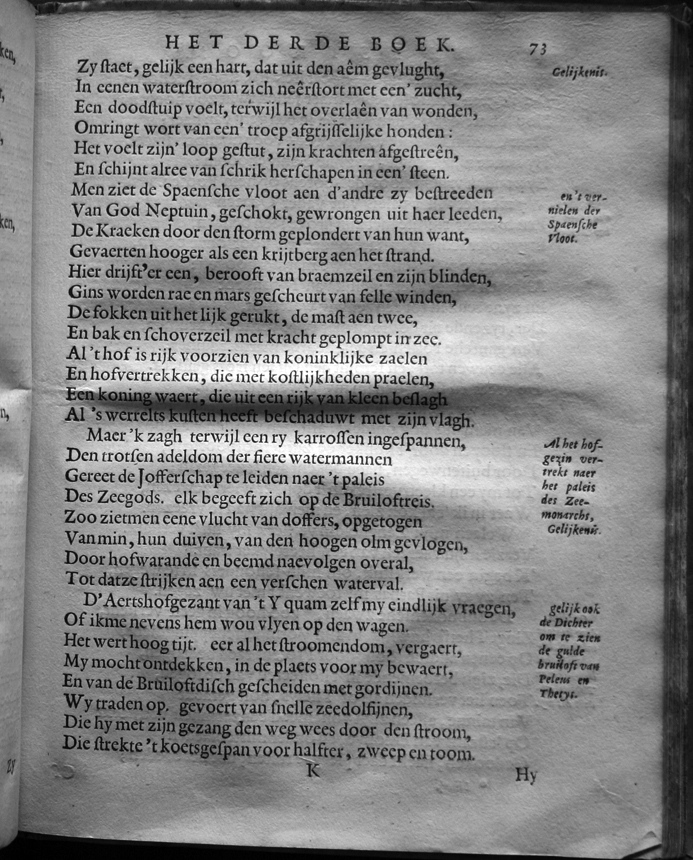 HET DERDE BOEK. 73
Zy ſtaet, gelijk een hart, dat uit den aêm gevlught,
In eenen waterſtroom zich neêrſtort met een' zucht,
Een doodſtuip voelt, terwijl het overlaên van wonden,
Omringt wort van een' troep afgrijſſelijke honden:
Het voelt zijn' loop geſtut, zijn krachten afgeſtreên,
En ſchijnt alree van ſchrik herſchapen in een' ſteen.
Gelijkenis.
Men ziet de Spaenſche vloot aen d'andre zy beſtreeden
Van God Neptuin, geſchokt, gewrongen uit haer leeden,
De Kraeken door den ſtorm geplondert van hun want,
Gevaerten hooger als een krijtberg aen het ſtrand.
Hier drijft'er een, berooft van braemzeil en zijn blinden,
Gins worden rae en mars geſcheurt van felle winden,
De fokken uit het lijk gerukt, de maſt aen twee,
En bak en ſchoverzeil met kracht geplompt in zee.
Al 't hof is rijk voorzien van koninklijke zaelen
En hofvertrekken, die met koſtlijkheden praelen,
Een koning waert, die uit een rijk van kleen beſlagh
Al 's werrelts kuſten heeft beſchaduwt met zijn vlagh.
en's ver-
nielen der
Spaenſche
Vloot.
Maer 'k zagh terwijl een ry karroſſen ingeſpannen,
Den trotſen adeldom der fiere watermannen
Gereet de Jofferſchap te leiden naer 't paleis
Des Zeegods. elk begeeft zich op de Bruiloftreis.
Zoo zietmen eene vlucht van doffers, opgetogen
Van min, hun duiven, van den hoogen olm gevlogen,
Door hofwarande en beemd naevolgen overal,
Tot datze ſtrijken aen een verſchen waterval.
Al het hof-
gezin ver-
trekt naer
het paleis
des Zee-
monarchs,
Gelijkenis.
D'Aertshofgezant van 't Y quam zelf my eindlijk vraegen,
Of ikme nevens hem wou vlyen op den wagen.
Het wert hoog tijt. eer al het ſtroomendom, vergaert,
My mocht ontdekken, in de plaets voor my bewaert,
En van de Bruiloftdiſch geſcheiden met gordijnen.
Wy traden op. gevoert van ſnelle zeedolfijnen,
Die hy met zijn gezang den weg wees door den ſtroom,
Die ſtrekte 't koetsgeſpan voor halfter, zweep en toom.
gelijk ook
de Dichter
om te zien
de gulde
bruiloft van
Peleus en
Thetys.
K Hy